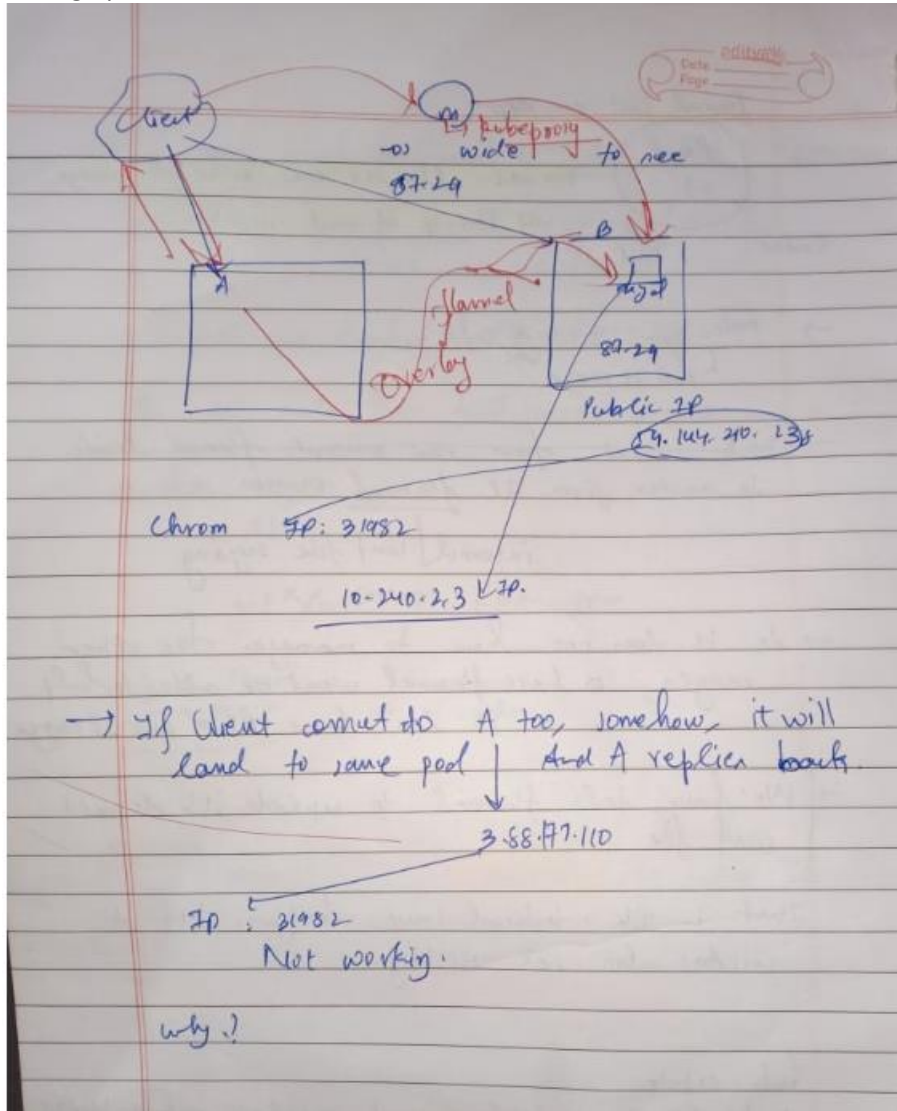 Date
Page
Client
m
↳ kubeproxy
-o wide to see
87.29
A
B
flannel
Overlay
87.29
Public IP
54.144.210.
Chrom IP: 31982
10.240.2.3 IP.
→ If Client comut do A too, somehow, it will
land to same pod And A replies back.
3.88.177.110
IP : 31982
Not working.
why?